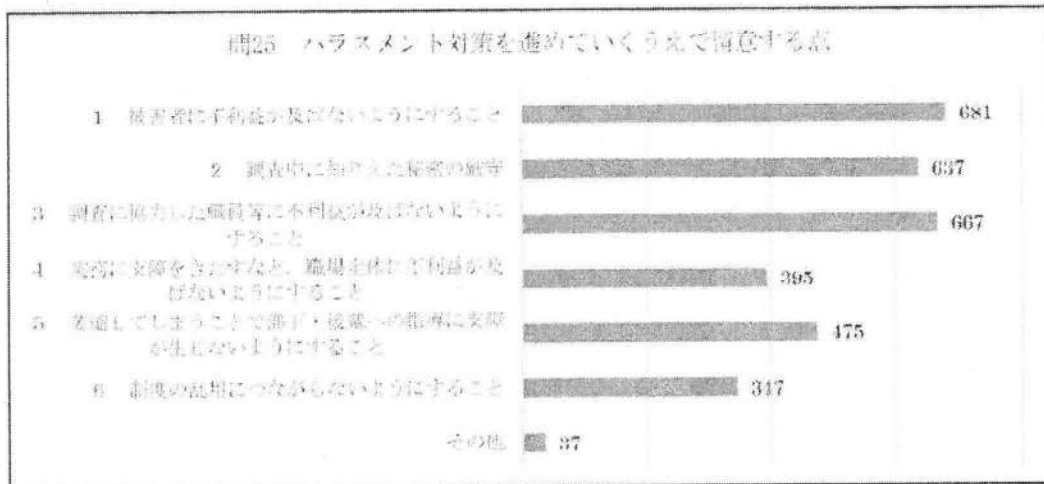 問25 ハラスメント対策を進めていくうえで留意する点
1 被害者に不利益が及ばないようにすること
681
2 調査中に知りえた秘密の厳守
637
3 調査に協力した職員等に不利益が及ばないように
すること
667
4 業務に支障をきたすなど、職場全体に不利益が及
ばないようにすること
395
5 委縮してしまうことで部下・後輩への指導に支障
が生じないようにすること
475
6 制度の乱用につながらないようにすること
347
その他
37